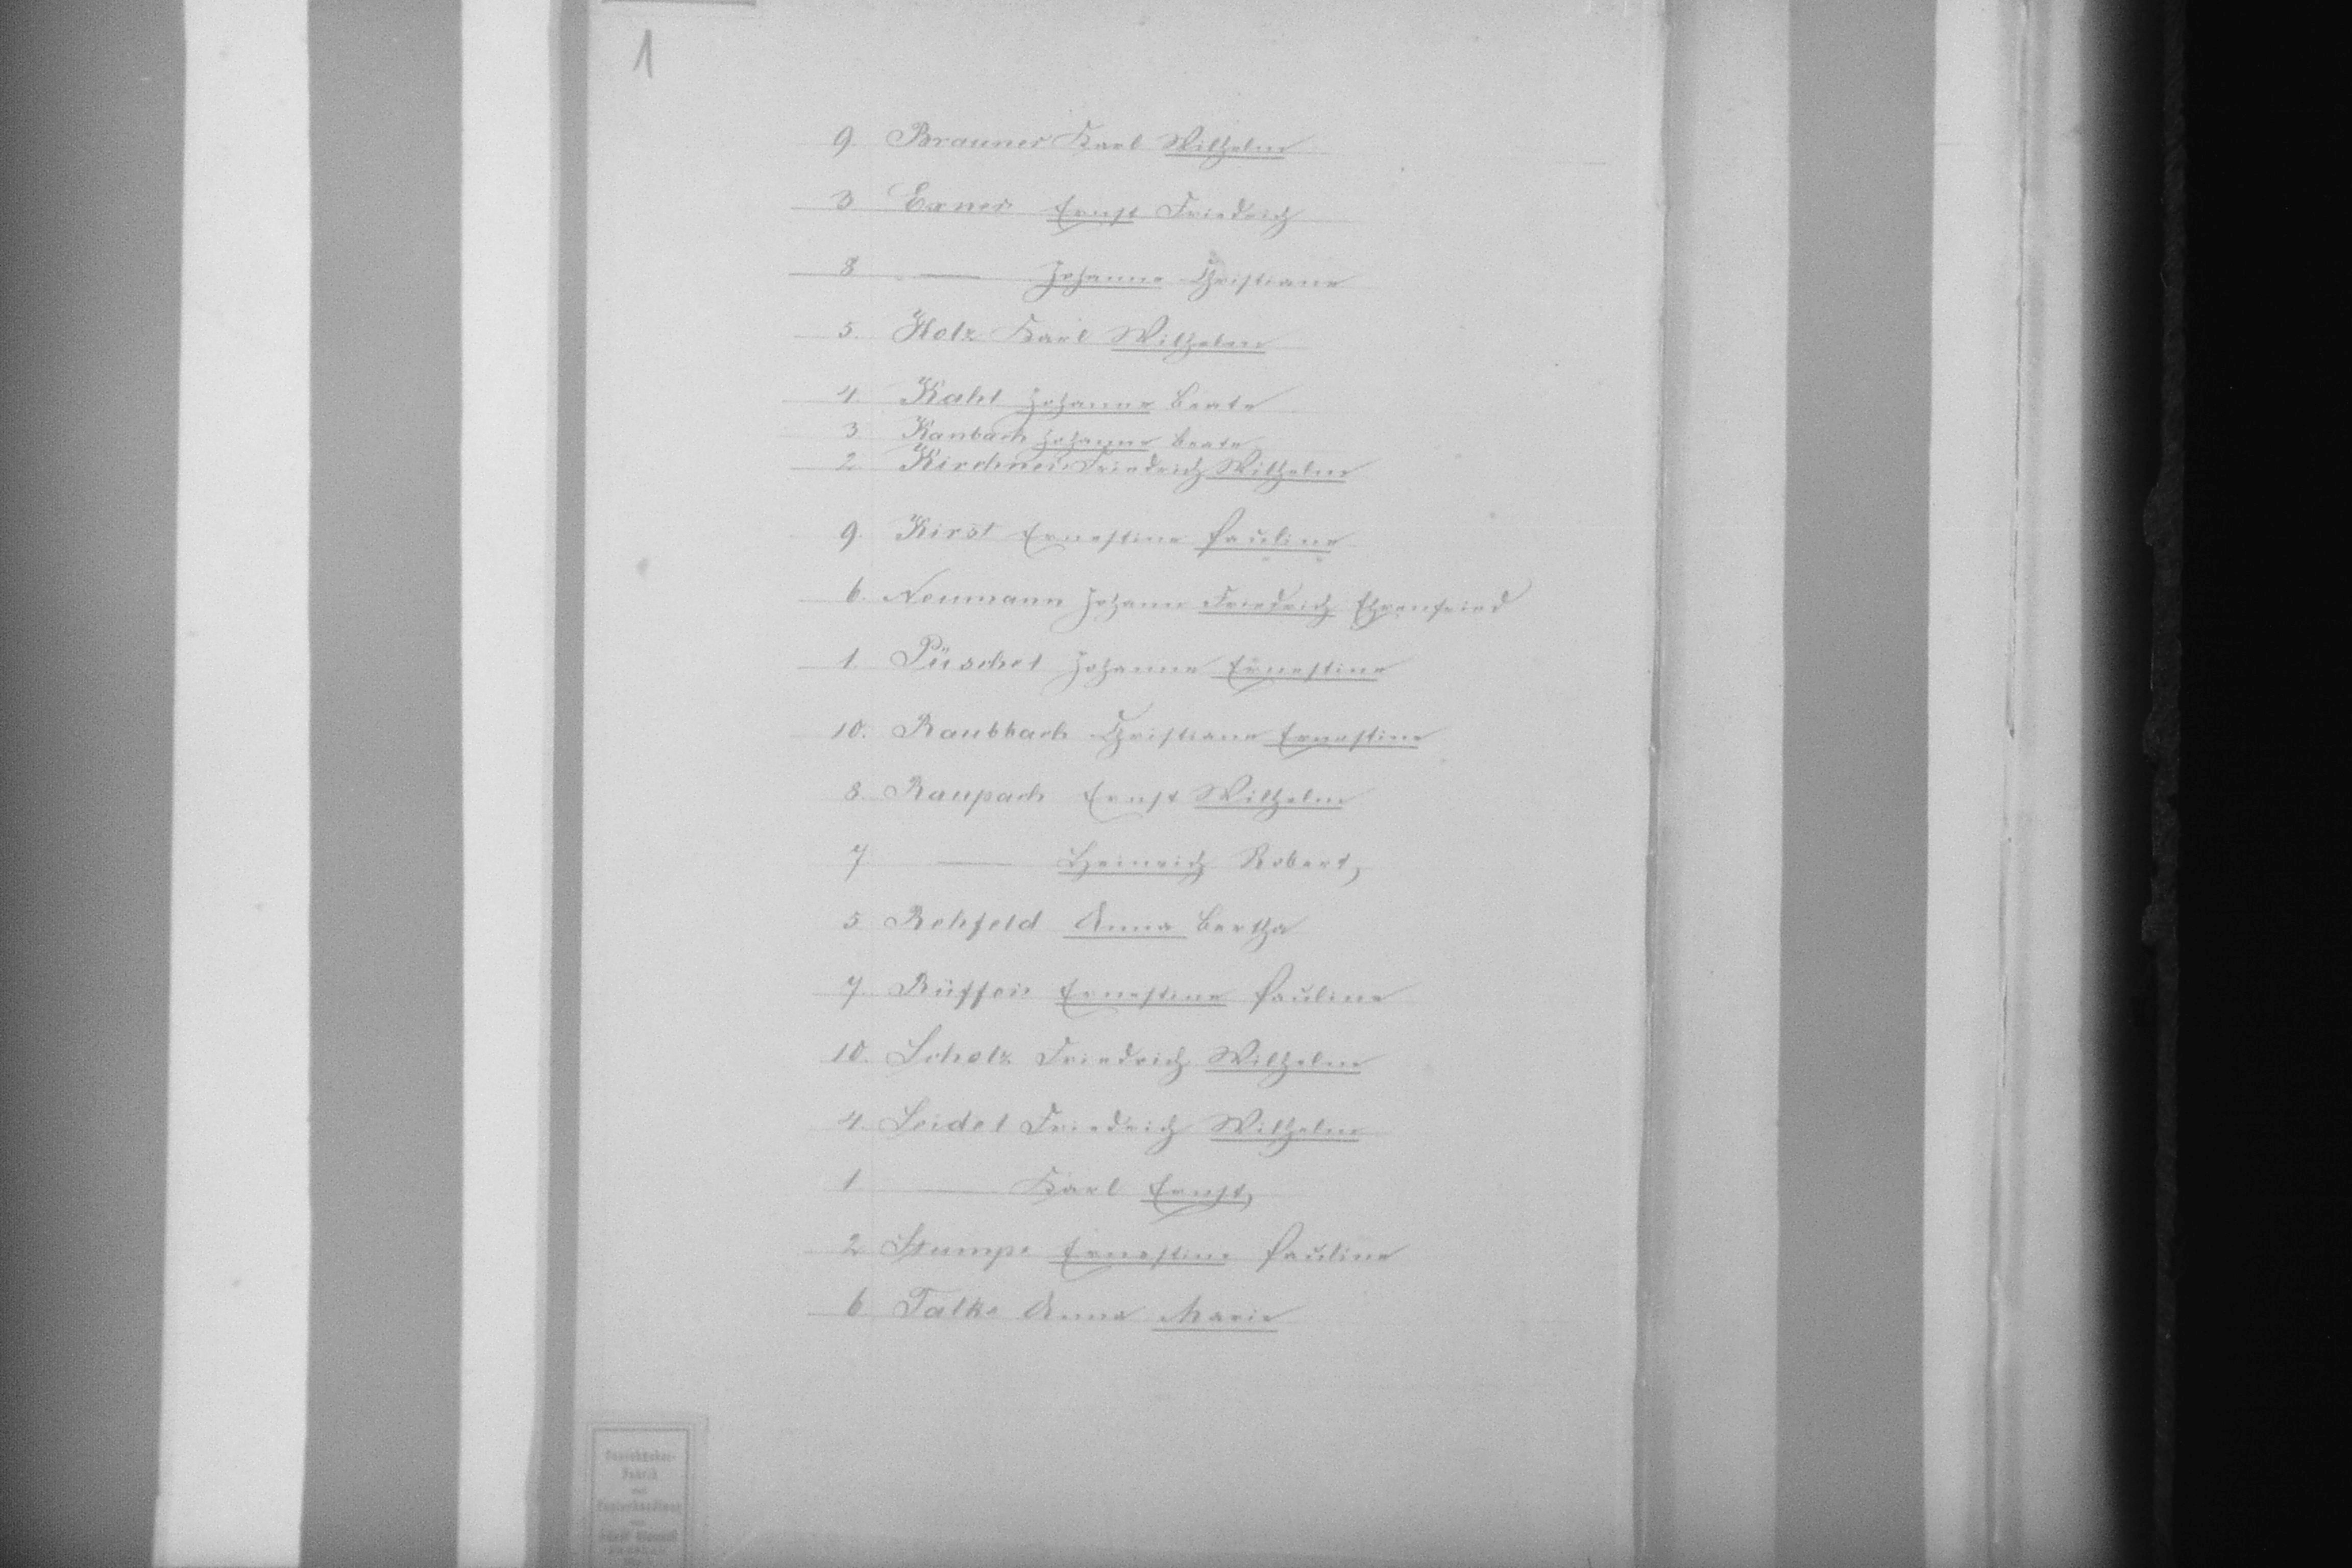 1
9. Brauner Karl Wilhelm
3 Exner Ernst Friedrich
8 — Johanne Christiane
5. Holz Karl Wilhelm
4. Kahl Johanne Beate
3. Kambach Johanne Beate
2. Kirchner Friedrich Wilhelm
9. Kirst Ernestine Pauline
6. Neumann Johann Friedrich Ehrenfried
1. Püschel Johanne Ernestine
10. Raubbach Christiane Ernestine
8. Raupach Ernst Wilhelm
7. — Heinrich Robert,
5 Rehfeld Anna Bertha
7. Rüffer Ernestine Pauline
10. Scholz Friedrich Wilhelm
4. Seidel Friedrich Wilhelm
1 — Karl Ernst,
2 Stumpe Ernestine Pauline
6 Talke Anna Marie
Fabrik